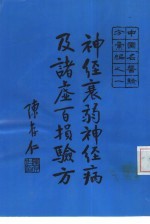 中國名醫驗
方彙編之八
神經衰弱神經病
及諸虛百損驗方
陳存仁